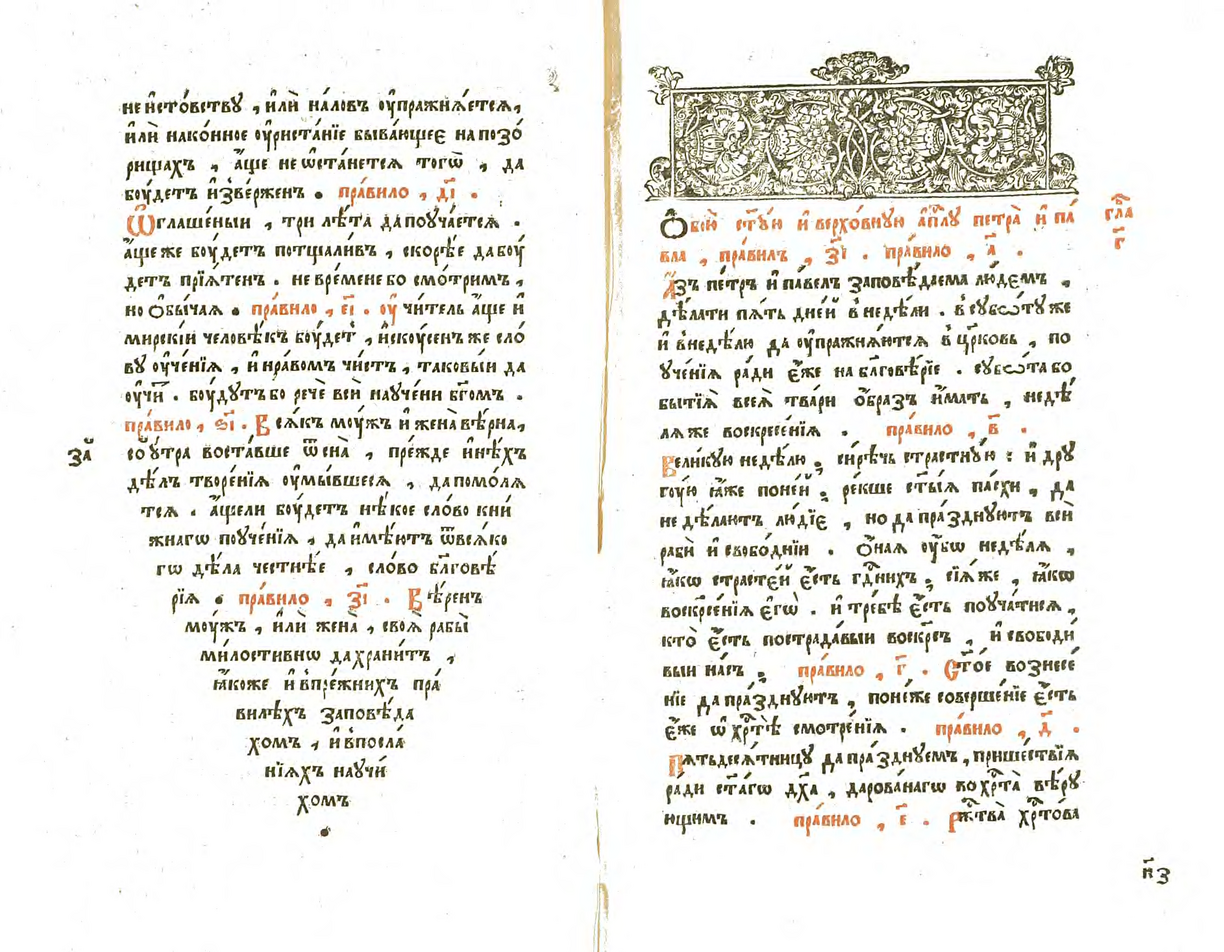 не и҆сто́вствꙋ , и҆лѝ на́ловъ ᲂу҆пражнѧ́етсѧ,
и҆лѝ нако́нное ᲂу҆риста́нїе быва́ющее на позо́
рищахъ , а҆́ще не ѡ҆ста́нетсѧ тогѡ̀ , да
бꙋ́детъ и҆зве́рженъ . пра́вило , д҃і .
Ѡ҆глаше́ныи , три лѣ́та да поꙋча́етсѧ .
а҆́ще же бꙋ́детъ потщали́въ , скорѣ́е да бꙋ́
детъ прїѧ́тенъ . не вре́мене бо смо́тримъ ,
но ѻ҆бы́чаѧ . пра́вило , є҃і . ᲂу҆чи́тель а҆́ще и҆
мирскі́и человѣ́къ бꙋ́детъ , и҆скꙋ́сенъ же сло́
вꙋ ᲂу҆че́нїѧ , и҆ нра́вомъ чи́стъ , таковы́и да
ᲂу҆чи́тъ . бꙋ́дꙋтъ бо речѐ всѝ наꙋче́ни бг҃омъ .
пра́вило , ѕ҃і . Всѧ́къ мꙋ́жъ и҆ жена̀ вѣ́рна,
соꙋ́тра воста́вше ѿ сна̀ , пре́жде и҆нѣ́хъ
за́
дѣ́лъ творе́нїѧ ᲂу҆мы́вшесѧ , да помо́лѧ
тсѧ . а҆́ще ли бꙋ́детъ нѣ́кое сло́во кни́
жнагѡ поꙋче́нїѧ , да и҆мѣ́ютъ ѿ всѧ́ко
гѡ дѣ́ла честнѣ́е , сло́во бл҃говѣ́
рїѧ . пра́вило , з҃і . Вѣ́ренъ
мꙋ́жъ , и҆лѝ жена̀ , своѧ̀ рабы̀
ми́лостивнѡ да храни́тъ ,
ꙗ҆́коже и҆ в̾пре́жнихъ пра́
вилѣхъ заповѣ́да
хомъ , и҆ в̾посла́
нїѧхъ наꙋчи́
хомъ
.
Ѻ҆бою̀ ст҃ꙋ́ю и҆ верхо́внꙋю а҆пⷭ҇лꙋ петра̀ и҆ па́
вла , пра́вилъ , з҃і . пра́вило , а҃ .
гла
в҃
А҆́зъ пе́тръ и҆ па́велъ заповѣ́даема лю́демъ ,
дѣ́лати пѧ́ть дне́й в̾недѣ́ли . в̾сꙋббѡ́тꙋ же
и҆ в̾недѣ́лю да ᲂу҆пражнѧ́ютсѧ в̾цр҃ковь , по
ꙋче́нїѧ ра́ди є҆́же на бл҃говѣ́рїе . сꙋббѡ́та бо
бытїѧ̀ всеѧ̀ тва́ри ѻ҆́бразъ и҆́мать , недѣ́
лѧ же воскресе́нїѧ . пра́вило , в҃ .
Вели́кꙋю недѣ́лю , си́рѣчь стра́стнꙋю : и҆ дрꙋ
гꙋ́ю ꙗ҆́же по не́й , ре́кше ст҃ы́ѧ па́схи , да
не дѣ́лаютъ лю́дїе , но да пра́зднꙋютъ всѝ
рабѝ и҆ свобо́днїи . Ѻ҆́наѧ ᲂу҆́бѡ недѣ́лѧ ,
ꙗ҆́кѡ страсте́й є҆́сть гдⷭ҇нихъ , сїѧ́ же , ꙗ҆́кѡ
воскр҃се́нїѧ є҆гѡ̀ . и҆ тре́бѣ є҆́сть поꙋча́тисѧ ,
кто̀ є҆́сть пострада́выи воскр҃съ , и҆ свободи́
выи на́съ . пра́вило , г҃ . Ст҃о́е вознесе́
нїе да пра́зднꙋютъ , поне́же соверше́нїе є҆́сть
є҆́же ѡ҆ хрⷭ҇тѣ̀ смотре́нїѧ . пра́вило , д҃ .
Пѧтьдесѧ́тницꙋ да пра́зднꙋемъ , прише́ствїѧ
ра́ди ст҃а́гѡ дх҃а , дарова́нагѡ во хрⷭ҇та̀ вѣ́рꙋ
ющимъ . пра́вило , є҃ . Ржⷭ҇тва̀ хрⷭ҇то́ва
н҃з